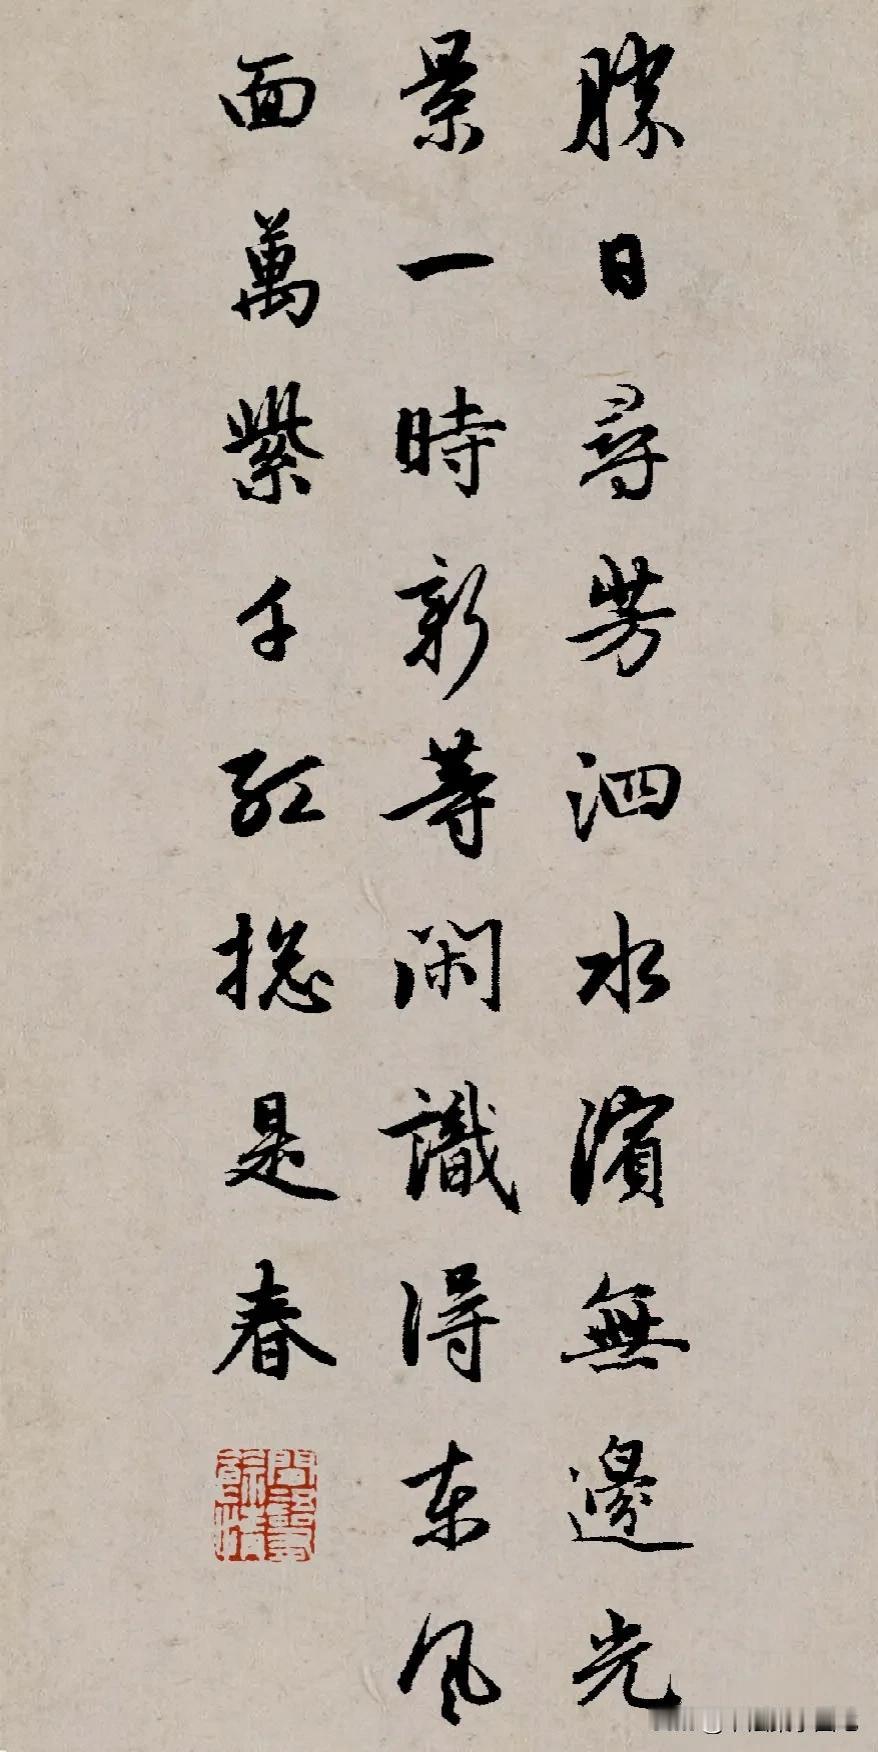 勝日尋芳泗水濱無邊光
景一時新等閑識得东風
面萬紫千紅揔是春